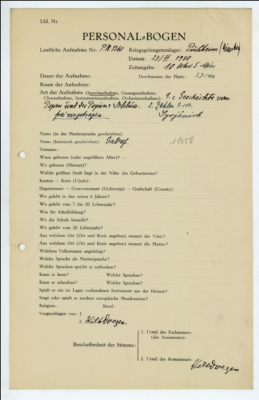 Lfd. Nr.
PERSONAL-BOGEN
Lautliche Aufnahme Nr.: PK 1160 Kriegsgefangenenlager: Puchheim
Datum: 1918
Zeitangabe: 10 Uhr 5 Min
Dauer der Aufnahme: Durchmesser der Platte: 27 cm
Raum der Aufnahme:
Art der Aufnahme (Sprechaufnahme, Gesangsaufnahme, Choraufnahme, Instrumentenaufnahme, Orchesteraufnahme): Geschichte vom
Popen und des Popens Tochter. 2. Zahlen
frei vorgetragen. Syrjänisch
Name (in der Muttersprache geschrieben):
Name (lateinisch geschrieben):
Vorname:
Wann geboren (oder ungefähres Alter)?
Wo geboren (Heimat)?
Welche größere Stadt liegt in der Nähe des Geburtsortes?
Kanton — Kreis (Ujedz):
Departement — Gouvernement (Gubernija) — Grafschaft (County):
Wo gelebt in den ersten 6 Jahren?
Wo gelebt vom 7. bis 20. Lebensjahr?
Was für Schulbildung?
Wo die Schule besucht?
Wo gelebt vom 20. Lebensjahr?
Aus welchem Ort (Ort und Kreis angeben) stammt der Vater?
Aus welchem Ort (Ort und Kreis angeben) stammt die Mutter?
Welchem Volksstamm angehörig?
Welche Sprache als Muttersprache?
Welche Sprachen spricht er außerdem?
Kann er lesen? Welche Sprachen?
Kann er schreiben? Welche Sprachen?
Spielt er ein im Lager vorhandenes Instrument aus der Heimat?
Singt oder spielt er modern europäische Musikweisen?
Religion: Beruf:
Vorgeschlagen von: 1.
2.
Beschaffenheit der Stimme:
1. Urteil des Fachmannes (des Assistenten):
2. Urteil des Kommissars: